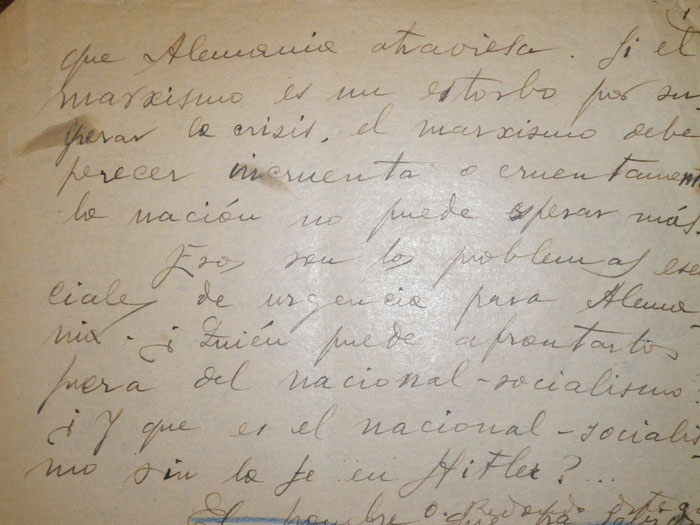 que Alemania atraviesa. Si el
marxismo es un estorbo por su
perar la crisis, el marxismo debe
perecer incruenta o cruentament
la nación no puede esperar más.
Esos son los problemas ese
ciales de urgencia para Alema-
nia. ¿Quién puede afrontarlos
fuera del nacional-socialismo?
¿Y que es el nacional-sociali
mo sin la fe en Hitler?...
O. Redondo Ortega
El hombre que